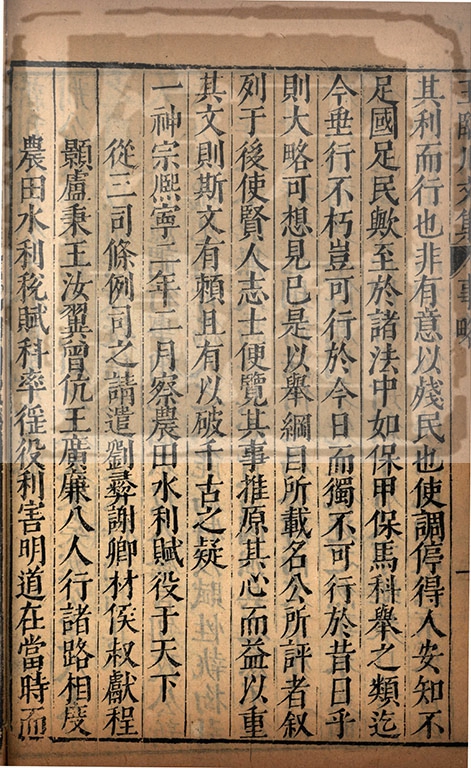 其利而行也非有意以殘民也使調停得人安知不
足國足民歟至於諸法中如保甲保馬科舉之類迄
今垂行不朽豈可行於今日而獨不可行於昔日乎
則大略可想見已是以舉綱目所載名公所評者敘
列于後使賢人志士便覽其事推原其心而益以重
其文則斯文有賴且有以破千古之疑
一神宗熈寧二年二月察農田水利賦役于天下
從三司條例司之請遣劉彝謝卿材侯叔獻程
顥盧秉王汝翼曾伉王廣廉八人行諸路相度
農田水利稅賦科率徭役利害明道在當時而